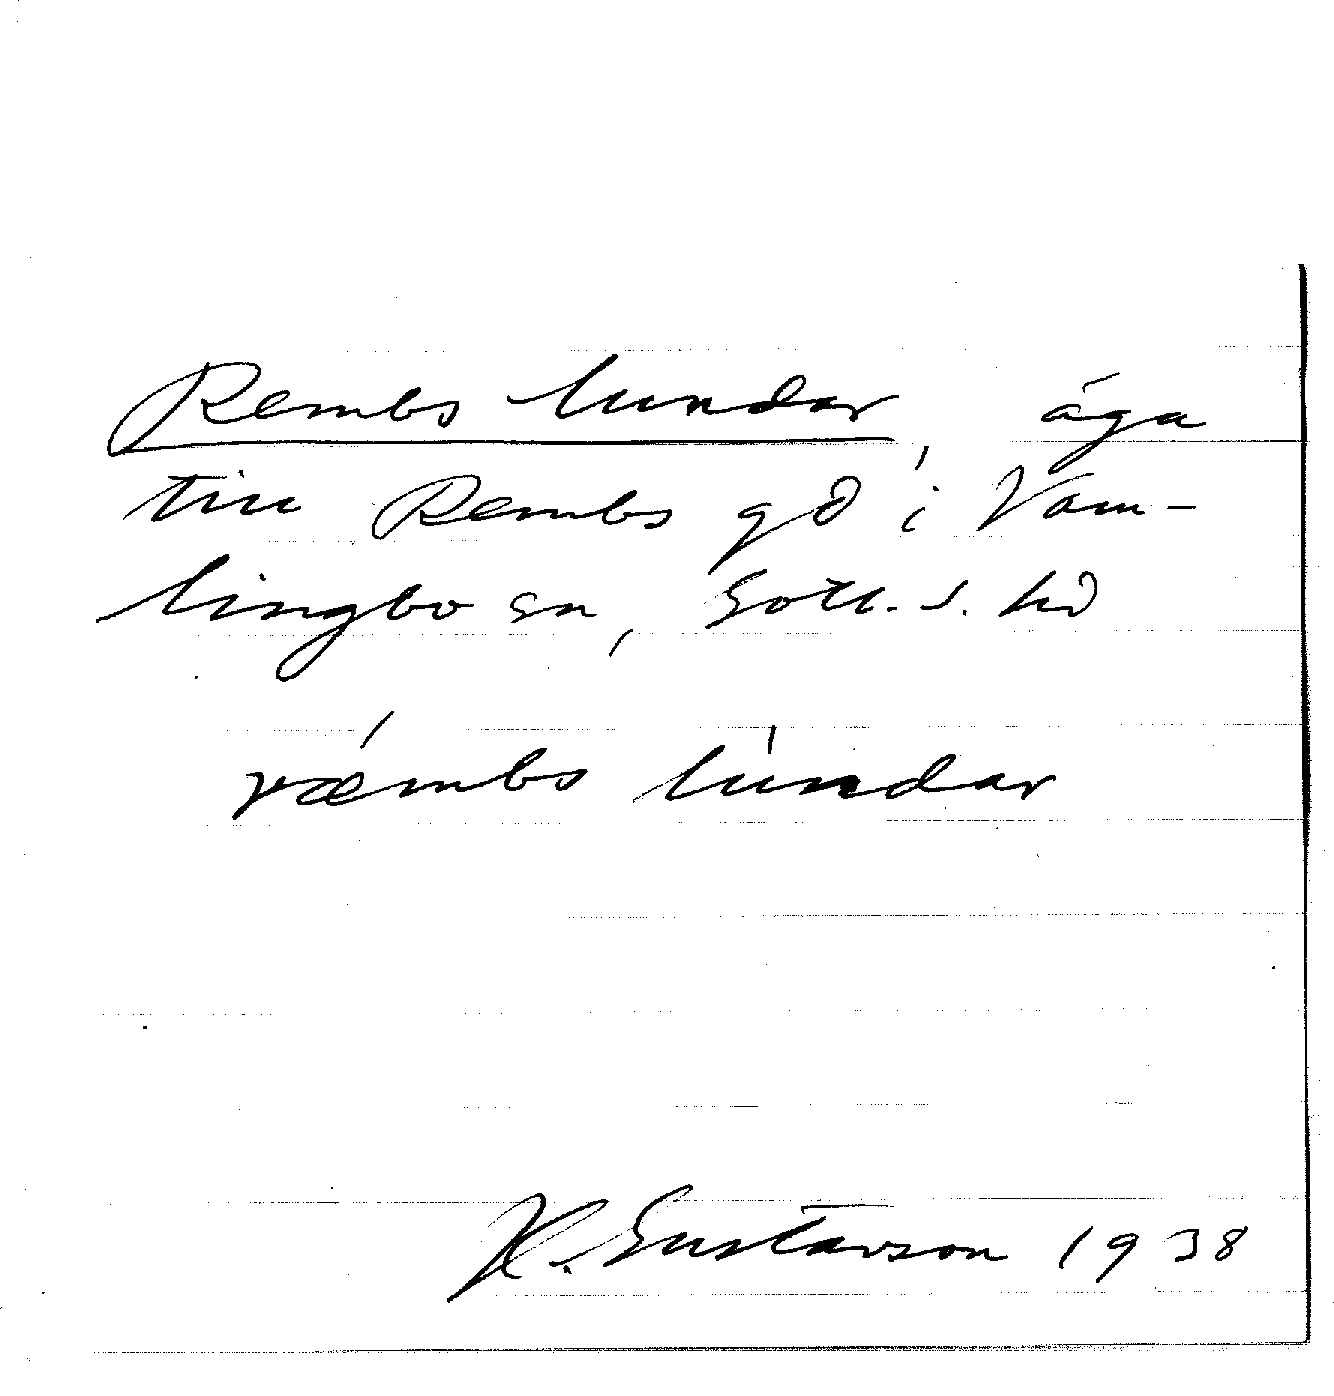 Rembs lundar, äga
till Rembs gd i Vam-
lingbo sn, Gotl. s. hd
ræmbs lundar
H. Gustavson 1938